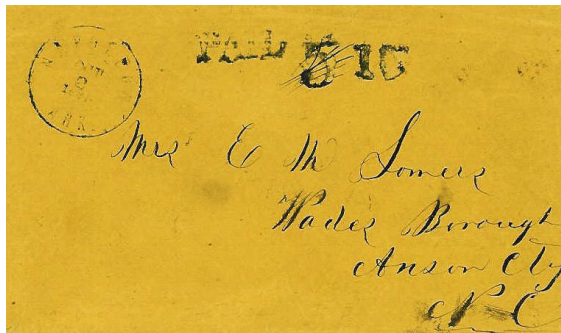 PAID 5 10
ARK.
Mrs E M Somers
Wades Borough
Anson Cty
N. C